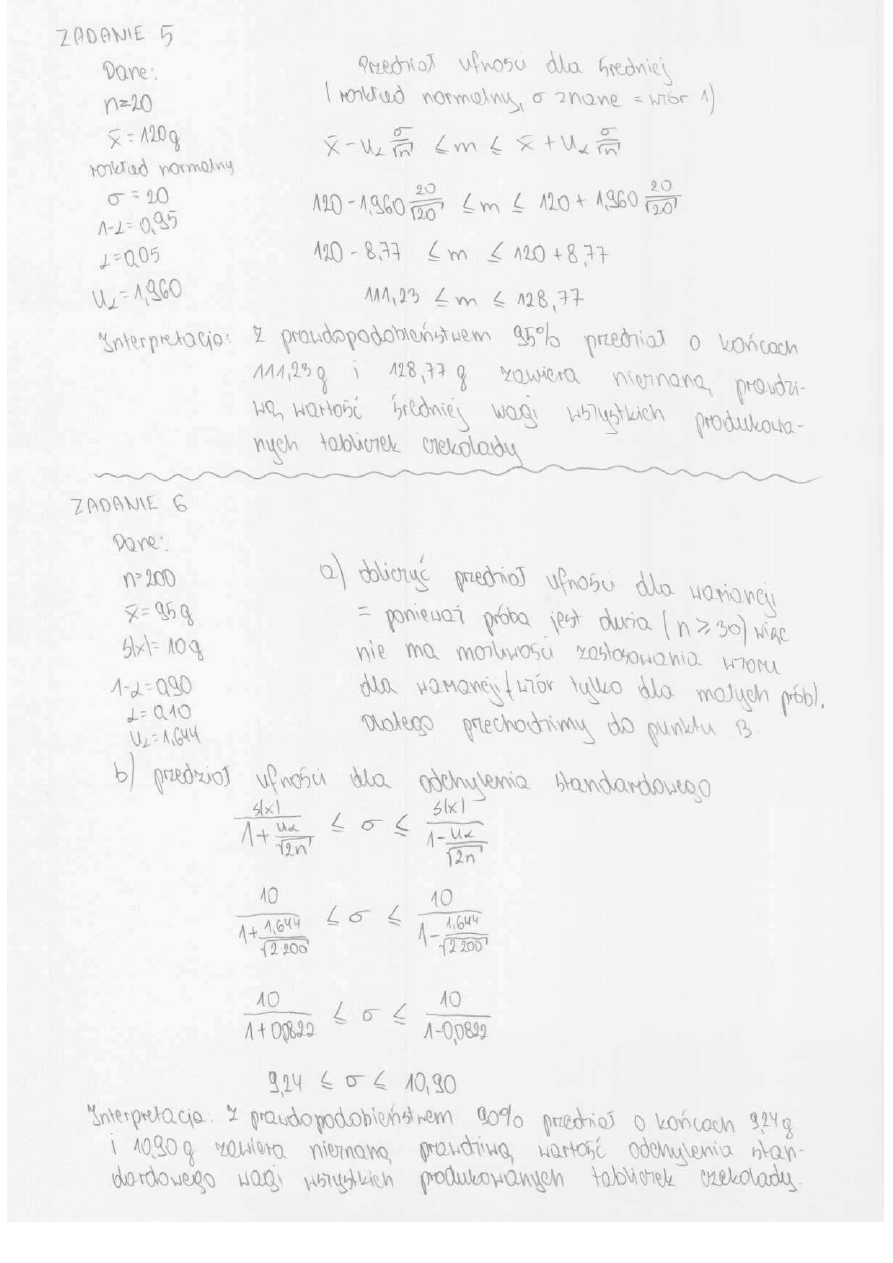 ZADANIE 5
Dane:
n=20
x̄=120g
rozkład normalny
σ=20
1-α=0,95
α=0,05
Uα=1,960
Przedział ufności dla średniej
(rozkład normalny, σ znane = wzór 1)
x̄ - Uα σ/√n ≤ m ≤ x̄ + Uα σ/√n
120 - 1,960 20/√20 ≤ m ≤ 120 + 1,960 20/√20
120 - 8,77 ≤ m ≤ 120 + 8,77
111,23 ≤ m ≤ 128,77
Interpretacja: Z prawdopodobieństwem 95% przedział o końcach
111,23g i 128,77 g zawiera nieznaną, prawdzi-
wą, wartość średniej wagi wszystkich produkowa-
nych tabliczek czekolady
ZADANIE 6
Dane:
n=200
x̄=95g
s(x)=10g
1-α=0,90
α=0,10
Uα=1,644
a) obliczyć przedział ufności dla wariancji
= ponieważ próba jest duża (n ≥ 30) więc
nie ma możliwości zastosowania wzoru
dla wariancji (wzór tylko dla małych prób).
Dlatego przechodzimy do punktu B
b) przedział ufności dla odchylenia standardowego
s(x)/(1+Uα/√2n) ≤ σ ≤ s(x)/(1-Uα/√2n)
10/(1+1,644/√2·200) ≤ σ ≤ 10/(1-1,644/√2·200)
10/(1+0,0822) ≤ σ ≤ 10/(1-0,0822)
9,24 ≤ σ ≤ 10,90
Interpretacja: Z prawdopodobieństwem 90% przedział o końcach 9,24g
i 10,90g zawiera nieznaną, prawdziwą, wartość odchylenia stan-
dardowego wagi wszystkich produkowanych tabliczek czekolady.